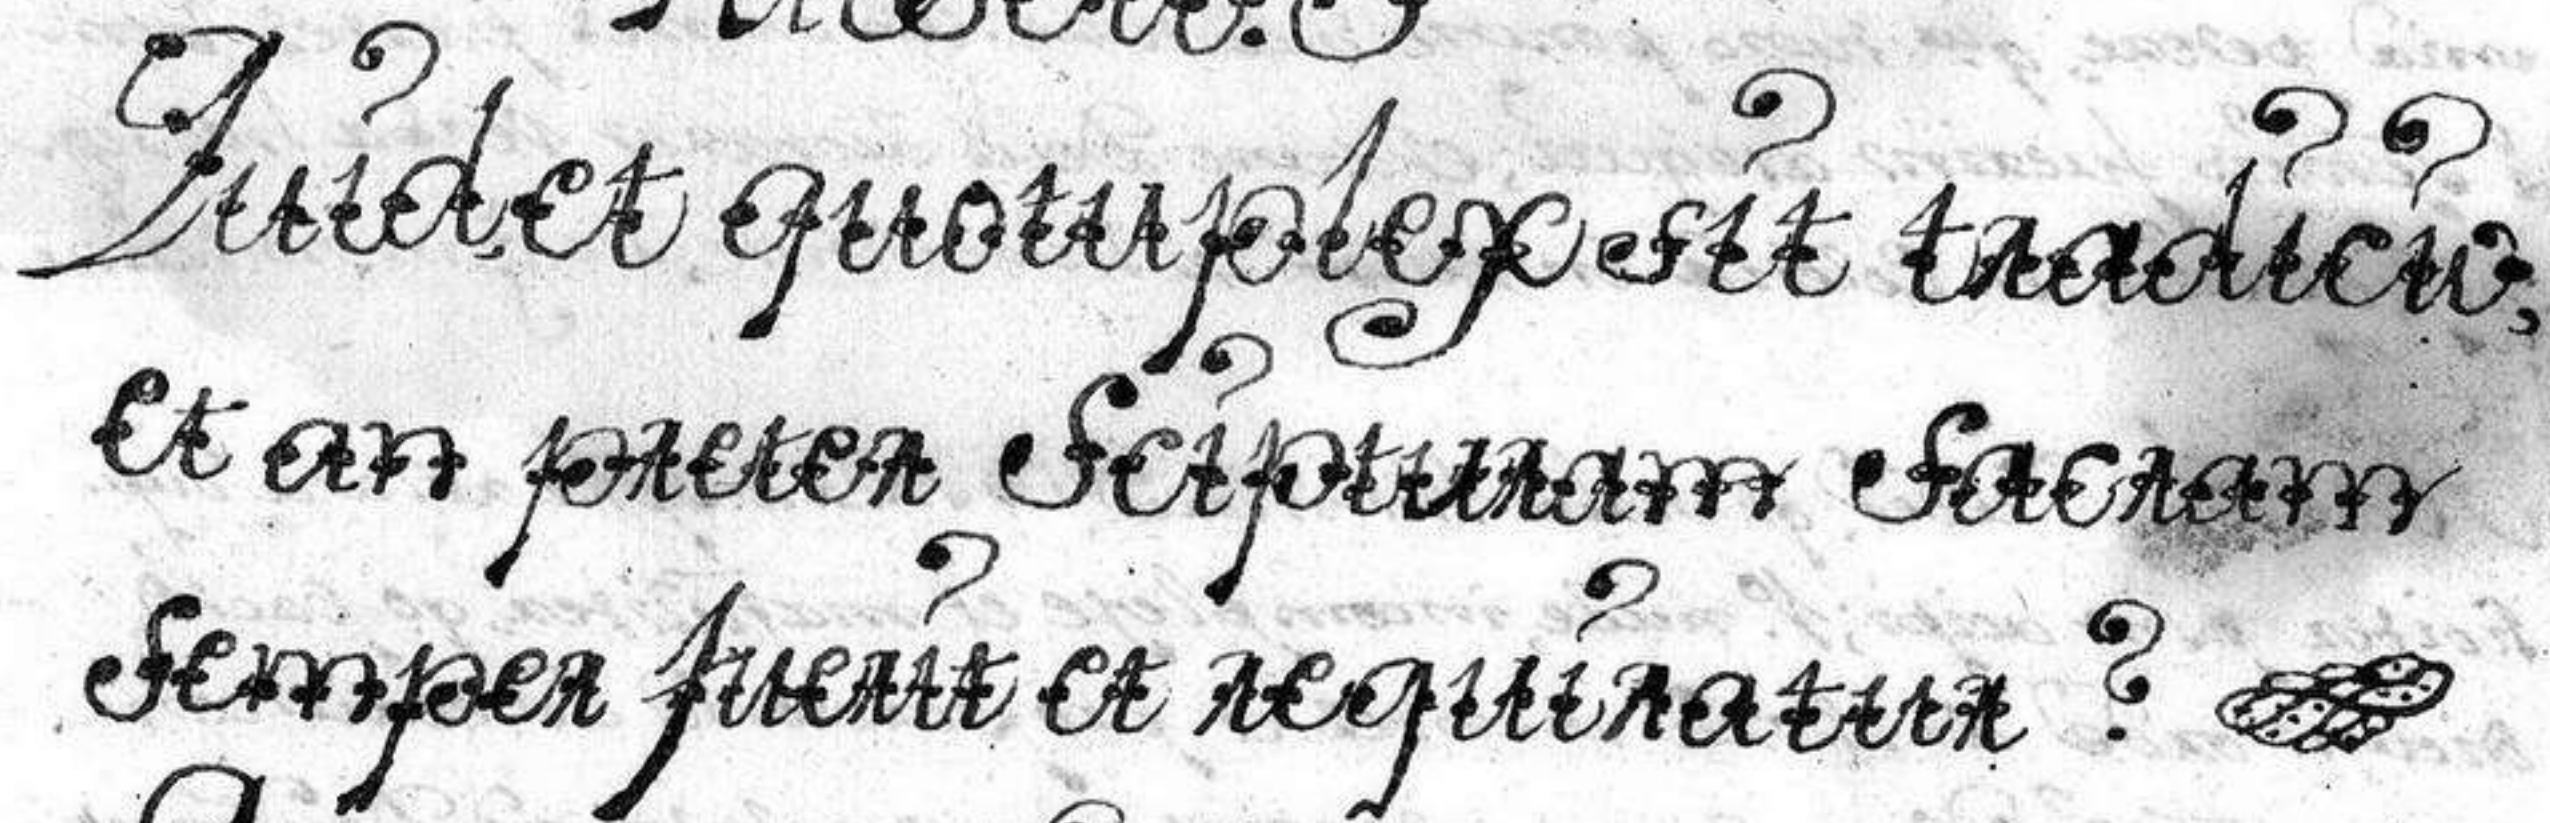 Quid, et quotuplex sit tradicio,
Et an preter Scipturam Sacram
Semper fuerit et requiratur?